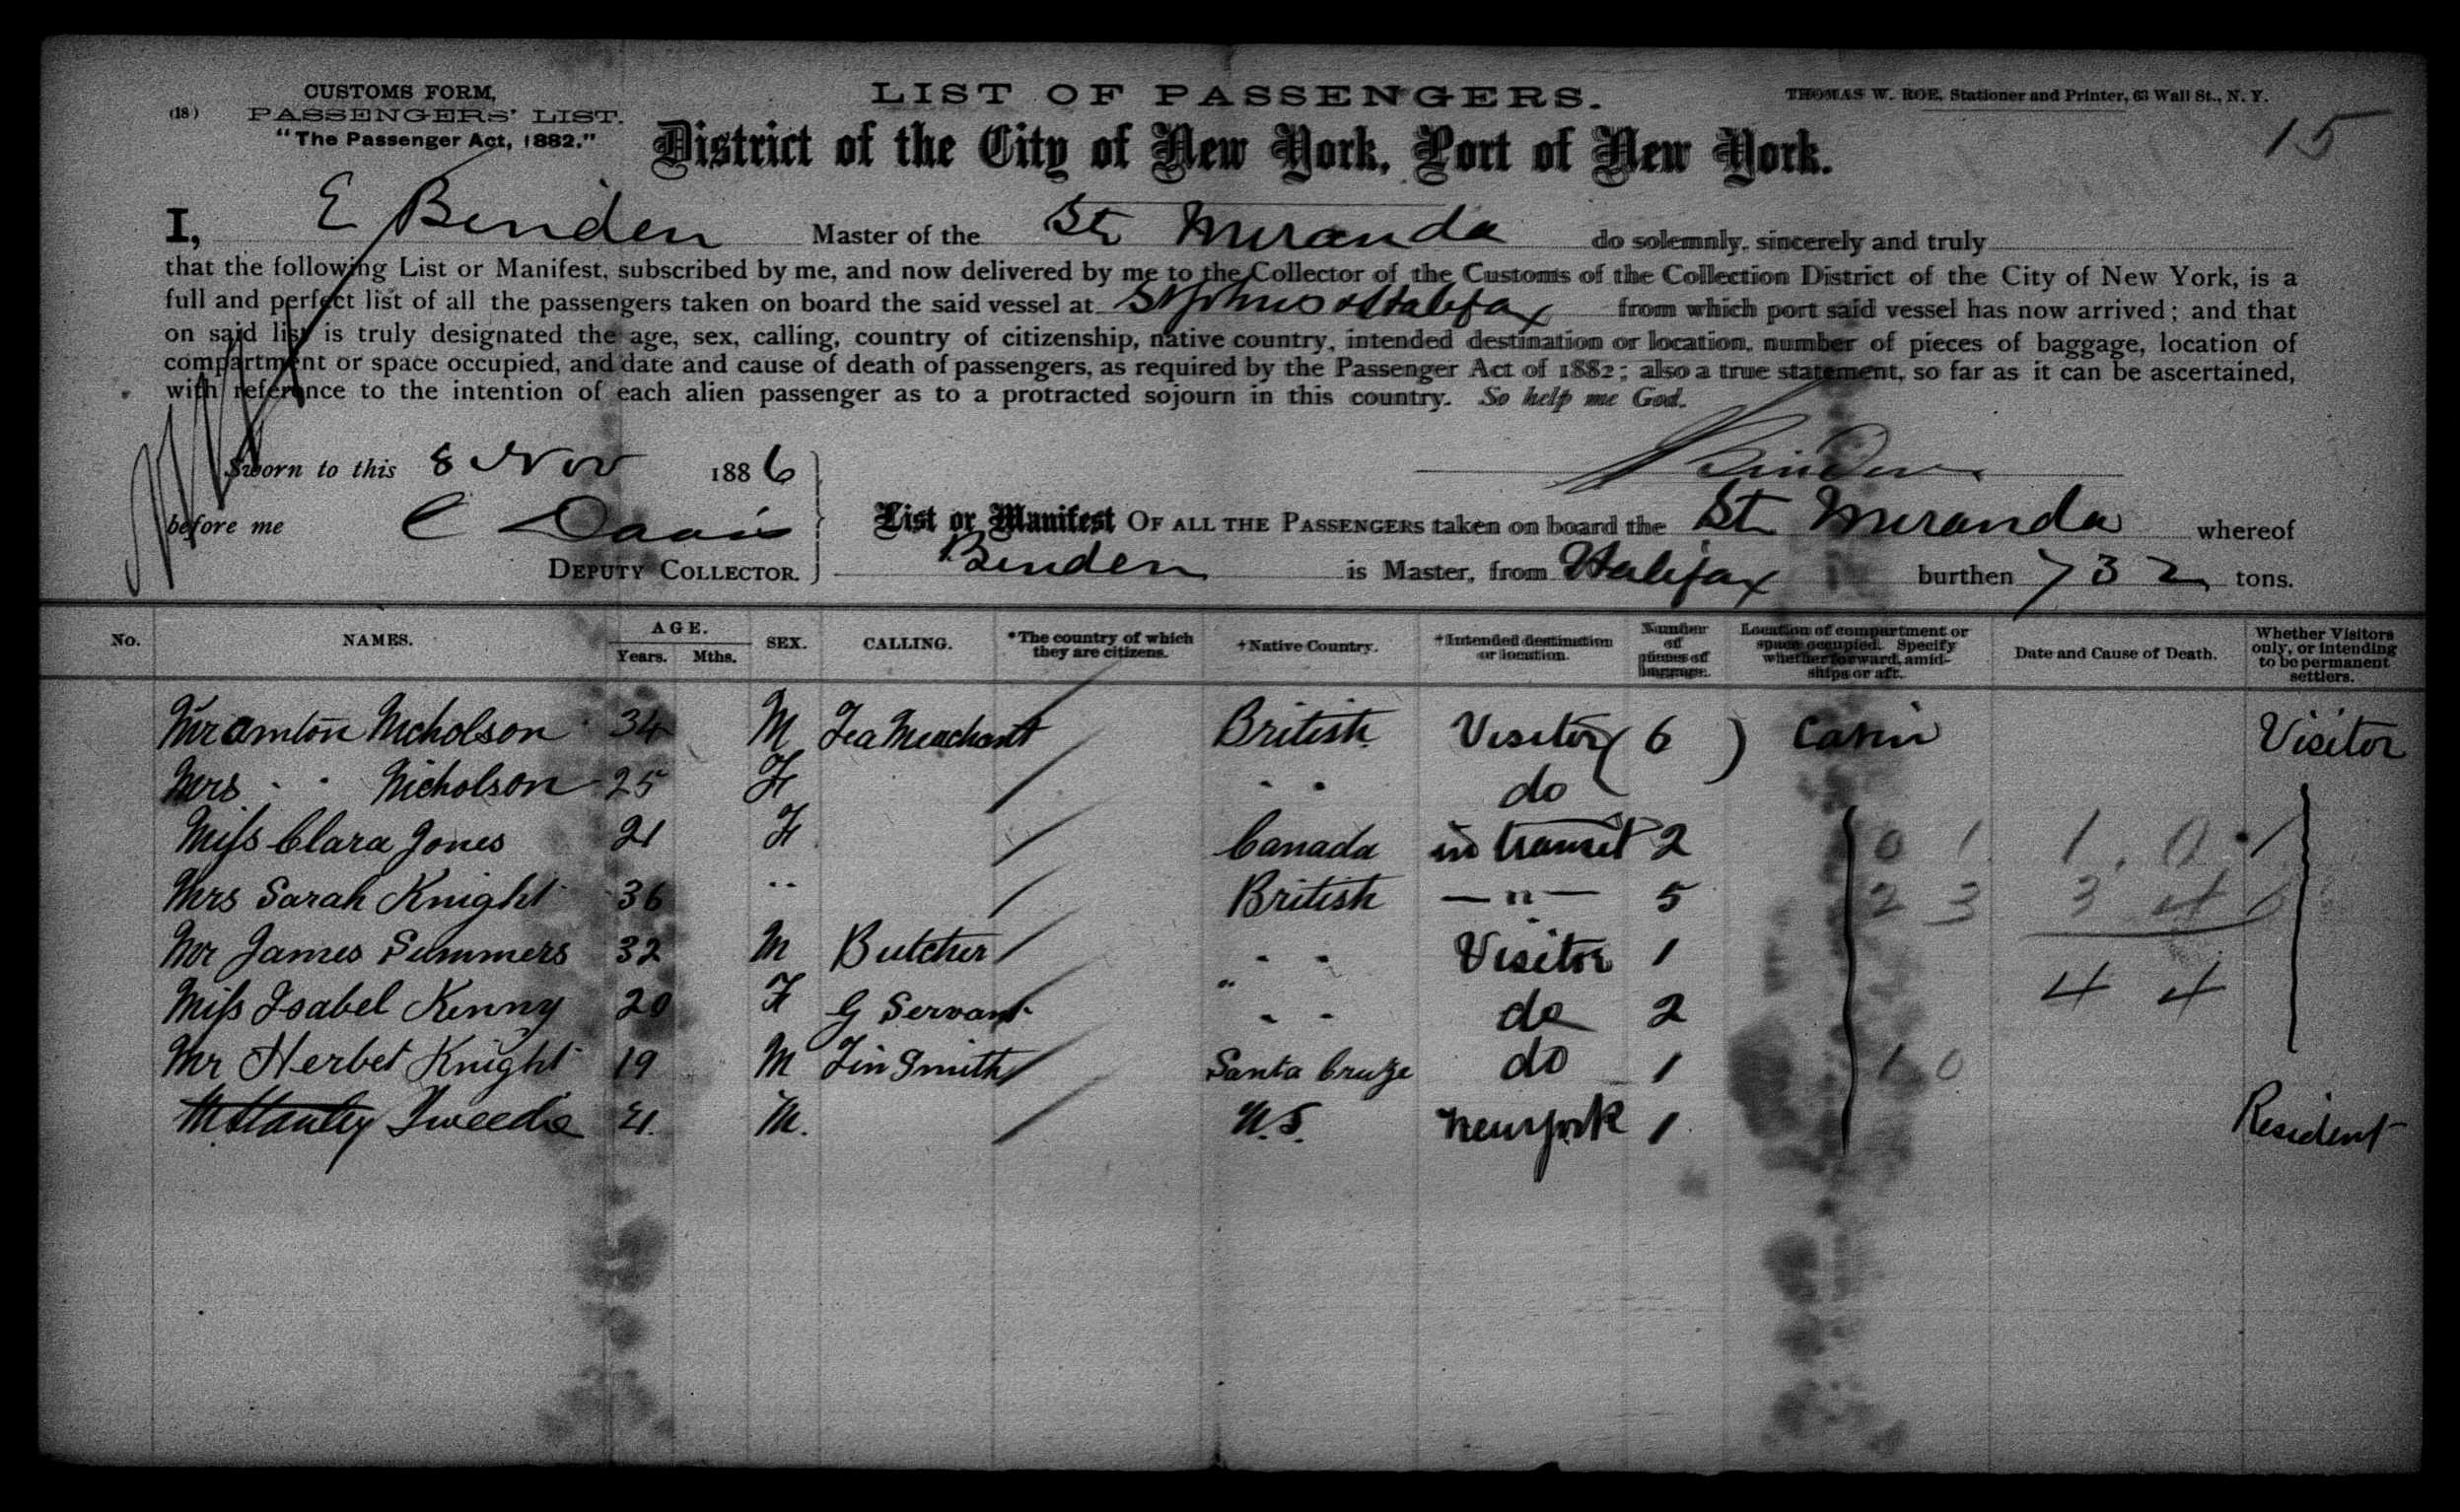 CUSTOMS FORM,
(18) PASSENGERS' LIST.
"The Passenger Act, 1882."
LIST OF PASSENGERS.
THOMAS W. ROE, Stationer and Printer, 63 Wall St., N. Y.
15
District of the City of New York, Port of New York.
I, E Binden Master of the St Miranda do solemnly, sincerely and truly
that the following List or Manifest, subscribed by me, and now delivered by me to the Collector of the Customs of the Collection District of the City of New York, is a
full and perfect list of all the passengers taken on board the said vessel at St Johns & Halifax from which port said vessel has now arrived; and that
on said list is truly designated the age, sex, calling, country of citizenship, native country, intended destination or location, number of pieces of baggage, location of
compartment or space occupied, and date and cause of death of passengers, as required by the Passenger Act of 1882; also a true statement, so far as it can be ascertained,
with reference to the intention of each alien passenger as to a protracted sojourn in this country. So help me God.
Sworn to this 8 Nov 1886
Binden
before me C Davis
DEPUTY COLLECTOR.
List or Manifest OF ALL THE PASSENGERS taken on board the St Miranda whereof
Binden is Master, from Halifax burthen 732 tons.
No. NAMES. AGE. Years. Mths. SEX. CALLING. *The country of which they are citizens. +Native Country. +Intended destination or location. Number of pieces of baggage. Location of compartment or space occupied. Specify whether forward, amidships or aft. Date and Cause of Death. Whether Visitors only, or intending to be permanent settlers.
Mr Nicholson 34 M Tea Merchant British Visitor ( 6 ) Cabin Visitor
Mrs " " Nicholson 25 F " " do
Miss Clara Jones 21 F Canada in transit 2 0 1 1 . 0
Mrs Sarah Knight 36 " British — " — 5 2 3 3 4
Mr James Summers 32 M Butcher " " Visitor 1
4 4
Miss Isabel Kenny 20 F G Servant " " do 2
Mr Herbet Knight 19 M Tin Smith Santa Cruze do 1 1 0
Stanley Tweedie 21. M. N.S. New York 1 Resident